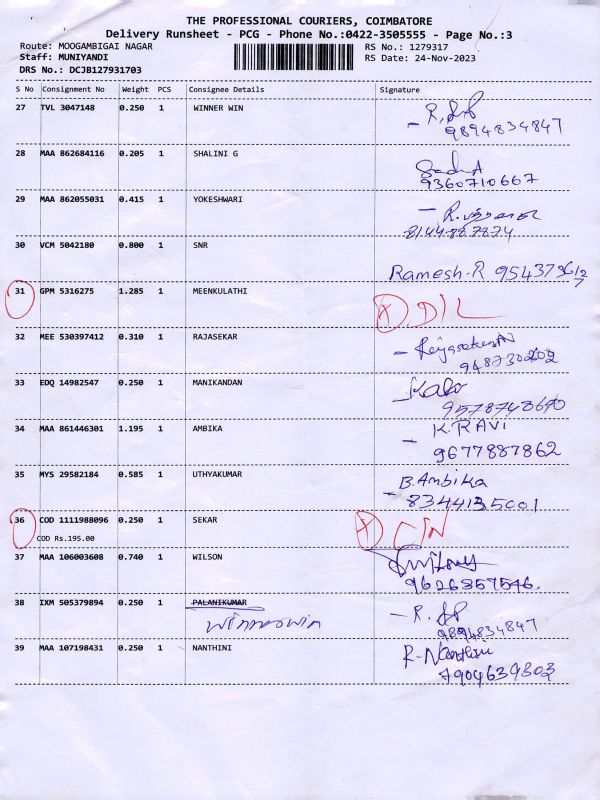 THE PROFESSIONAL COURIERS, COIMBATORE
Delivery Runsheet - PCG - Phone No.:0422-3505555 - Page No.:3
Route: MOOGAMBIGAI NAGAR RS No.: 1279317
Staff: MUNIYANDI RS Date: 24-Nov-2023
DRS No.: DCJB127931703
S No Consignment No Weight PCS Consignee Details Signature
27 TVL 3047148 0.250 1 WINNER WIN
9894834847
28 MAA 862684116 0.205 1 SHALINI G
9360710667
29 MAA 862055031 0.415 1 YOKESHWARI
30 VCM 5042180 0.800 1 SNR
Ramesh.R
31 GPM 5316275 1.285 1 MEENKULATHI
D/L
32 MEE 530397412 0.310 1 RAJASEKAR
948730202
33 EDQ 14982547 0.250 1 MANIKANDAN
34 MAA 861446301 1.195 1 AMBIKA K.RAVI
9677887862
35 MYS 29582184 0.585 1 UTHYAKUMAR B.Ambika
8344135001
36 COD 1111988096 0.250 1 SEKAR
COD Rs.195.00
37 MAA 106003608 0.740 1 WILSON
9626357546.
38 IXM 505379894 0.250 1 PALANIKUMAR
winnerwin 9894834847
39 MAA 107198431 0.250 1 NANTHINI R-Nanthini
7904639303